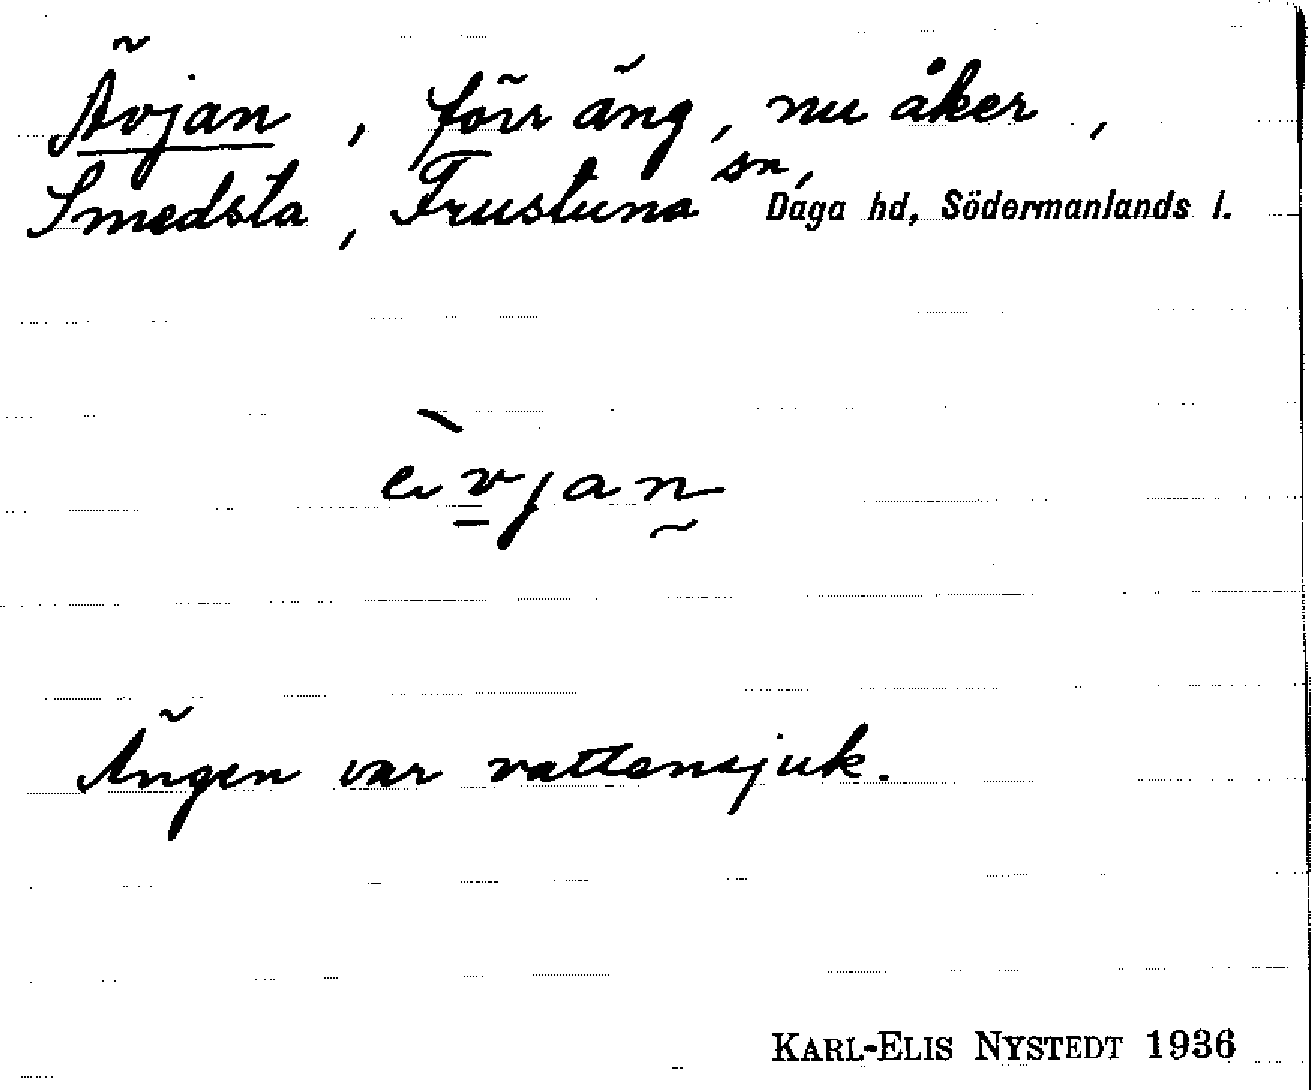 Ävjan, förr äng, nu åker,
Smedsta, Frustuna sn, Daga hd, Södermanlands l.
èvjan
Ängen var vattensjuk.
KARL-ELIS NYSTEDT 1936